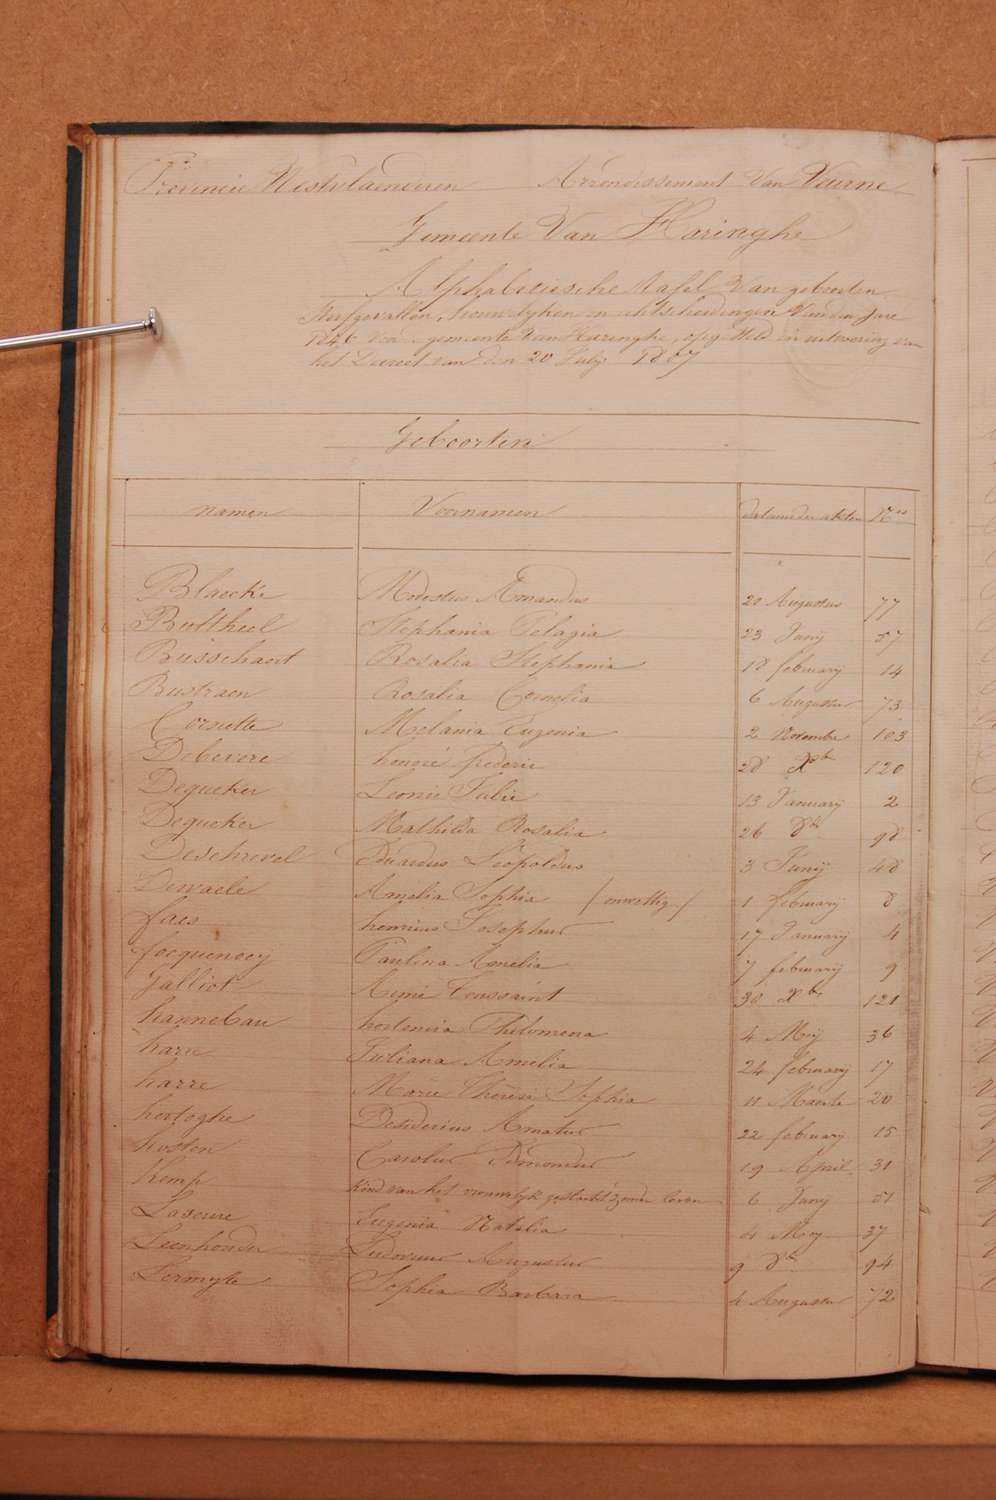 Provincie Westvlaenderen Arrondissement Van Veurne
Gemeente Van Haringhe
Alphabetische tafel Van geboorten
Sterfgevallen, houwelyken en echtscheidingen Van den Jare
1846 Van de gemeente Van Haringhe, opgesteld in uitvoering van
het Decreet van den 20 July 1807
Geboorten
namen Voornamen datum der akten Nos
Blaecke Modestus Amandus 20 Augustus 77
Bultheel Stephania Pelagia 23 Juny 57
Busschaert Rosalia Stephania 18 february 14
Bustraen Rosalia Cornelia 6 Augustus 73
Cornette Melania Eugenia 2 Novembre 103
Debevere henrie frederic 28 Xbr 120
Dequeker Leonie Julie 13 January 2
Dequeker Mathilda Rosalia 26 8br 98
Deschrevel Eduardus Leopoldus 3 Juny 48
Dewaele Amelia Sophia / onwettig / 1 february 8
faes henricus Josephus 17 January 4
focquenoey Paulina Amelia 7 february 9
Galliot Remi Toussaint 30 Xbr 121
hannebau hortensia Philomena 4 Mey 36
haru Juliana Amelia 24 february 17
harre Marie Therese Sophia 11 Maerte 20
hertoghe Desiderius Amatus 22 february 15
hosten Carolus Edmondus 19 April 31
Kemp Kind van het vrouwelyk geslacht zonder leven 6 Juny 51
Laseure Eugenia Natalia 4 Mey 37
Leenhonder Ludovicus Augustus 9 8br 94
Lermyte Sophia Barbara 4 Augustus 72